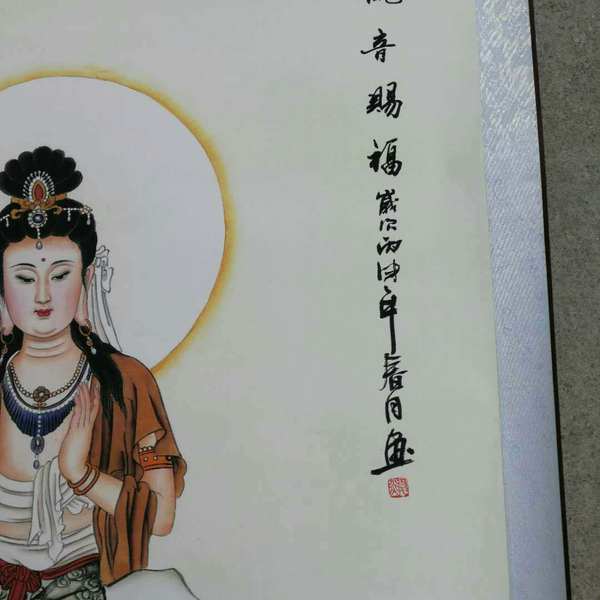 音賜福歲次丙申年春月